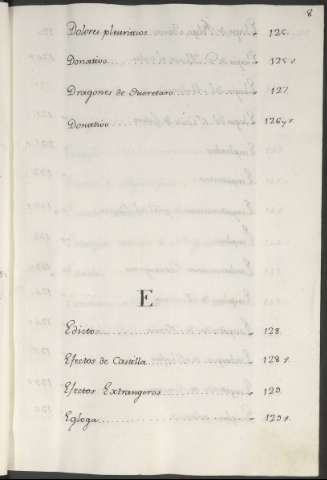 8
Dolores pleuriticos 126.
Donativo 126 v.
Dragones de Queretaro 127.
Donativo 126 y v.
E
Edicto 128.
Efectos de Castilla 128 v.
Efectos Extrangeros 129.
Egloga 129 v.